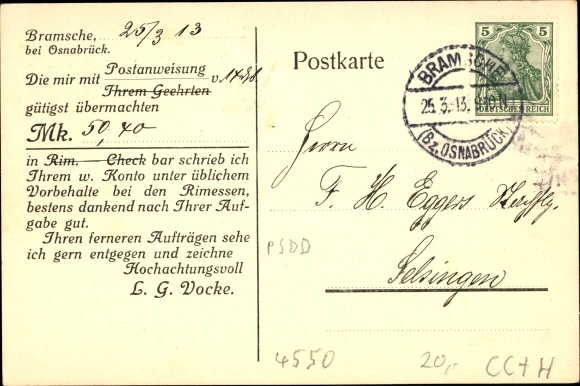 Bramsche, 25/3 13
bei Osnabrück.
Die mir mit Postanweisung
Ihrem Geehrten
gütigst übermachten
Mk. 50,40
in Rim. — Check bar schrieb ich
Ihrem w. Konto unter üblichem
Vorbehalte bei den Rimessen,
bestens dankend nach Ihrer Auf-
gabe gut.
Ihren ferneren Aufträgen sehe
ich gern entgegen und zeichne
Hochachtungsvoll
L. G. Vocke.
Postkarte
5 5
DEUTSCHES REICH
BRAMSCHE
25.3.13.
(Bz. OSNABRÜCK)
Herrn
F. H. Eggers
Selsingen
PSDD
4550
20,-
CC+H